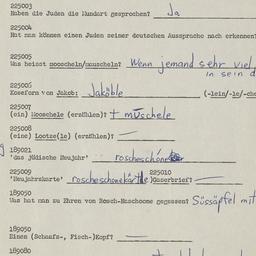 225003
Haben die Juden die Mundart gesprochen? Ja
225004
Hat man können einen Juden seiner deutschen Aussprache nach erkennen?
225005
Was heisst mooscheln/mauscheln? Wenn jemand sehr viel
in sein d
225006
Koseform von Jakob: Jaköble (-lein/-le/-che
225007
(ein) Mooschele (erzählen)? + müschele
225008
(eine) Lootze(le) (erzählen)? —
189021
'das jüdische Neujahr' roscheschone
225009 225010
'Neujahrskarte' roscheschonekärtle )Gaserbrief?
189050
Was hat man zu Ehren von Rosch-Haschoone gegessen? Süssäpfel mit
189050
Einen (Schaafs-, Fisch-)Kopf? —
189080